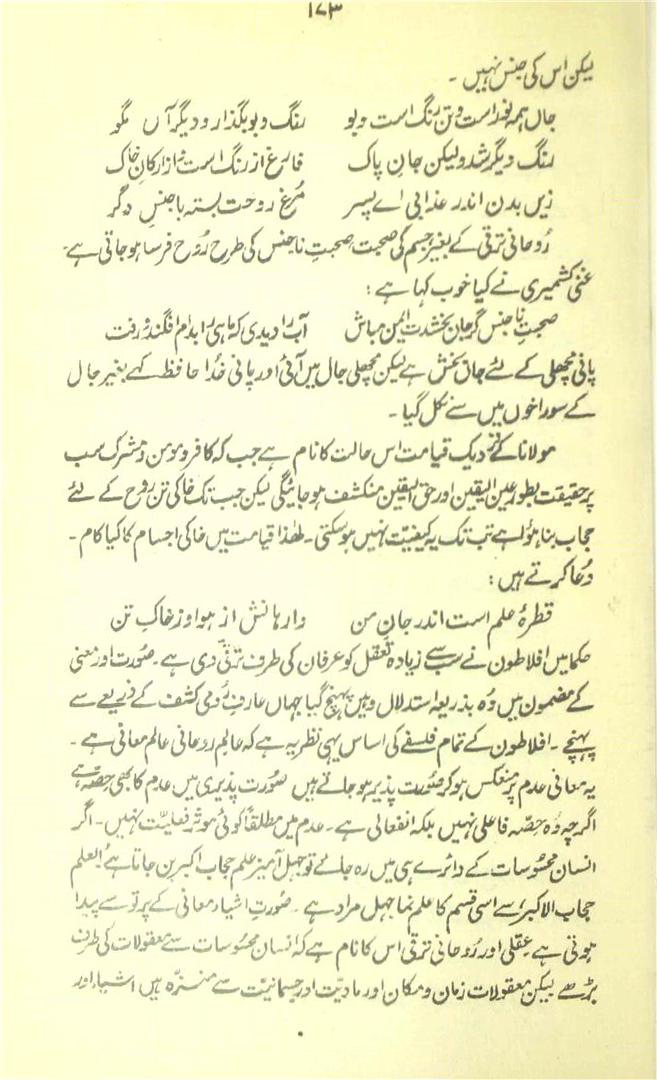 ۱۷۳
لیکن اس کی جنس نہیں ۔
جاں ہمہ نور است و تن رنگ است و بو رنگ و بو بگذار و دیگر آں مگو
رنگ دیگر شد ولیکن جانِ پاک فارغ از رنگ است و از ارکانِ خاک
زیں بدن اندر عذابی اے پسر مُرغِ روحت بستہ با جنسِ دگر
رُوحانی ترقی کے بغیر جسم کی صحبت صحبتِ ناجنس کی طرح رُوح فرسا ہو جاتی ہے۔
غنی کشمیری نے کیا خوب کہا ہے :
صحبتِ ناجنس گر جاں بخشدت ایمن مباش آب را دیدی کہ ماہی را بدام افگند و رفت
پانی مچھلی کے لئے جاں بخش ہے لیکن مچھلی جال میں آئی اور پانی خُدا حافظ کہے بغیر جال
کے سوراخوں میں سے نکل گیا ۔
مولانا کے نزدیک قیامت اس حالت کا نام ہے جب کہ کافر و مومن و مشرک سب
پر حقیقت بطور عین الیقین اور حق الیقین منکشف ہو جائیگی لیکن جب تک خاکی تن رُوح کے لئے
حجاب بنا ہؤا ہے تب تک یہ کیفیّت نہیں ہو سکتی ۔ لھٰذا قیامت میں خاکی اجسام کا کیا کام ۔
دُعا کرتے ہیں :
قطرۂ علم است اندر جانِ من وارہانش از ہوا و ز خاکِ تن
حکما میں افلاطون نے سب سے زیادہ تعقّل کو عرفان کی طرف ترقی دی ہے ۔ صُورت اور معنی
کے مضمون میں وُہ بذریعہ استدلال وہیں پہنچ گیا جہاں عارفِ رُومی کشف کے ذریعے سے
پہنچے ۔ افلاطون کے تمام فلسفے کی اساس یہی نظریہ ہے کہ عالمِ روحانی عالمِ معانی ہے ۔
یہ معانی عدم پر منعکس ہو کر صُورت پذیر ہو جاتے ہیں صُورت پذیری میں عدم کا بھی حِصّہ ہے
اگرچہ وُہ حِصّہ فاعلی نہیں بلکہ انفعالی ہے ۔ عدم میں مطلقاً کوئی موثر فعلیّت نہیں ۔ اگر
انسان محسُوسات کے دائرے ہی میں رہ جائے تو جہل آمیز علم حجاب اکبر بن جاتا ہے العلم
حجاب الاکبر سے اسی قسم کا علم نما جہل مراد ہے ۔ صُورتِ اشیاء معانی کے پرتو سے پیدا
ہوتی ہے عقلی اور رُوحانی ترقی اس کا نام ہے کہ انسان محسُوسات سے معقولات کی طرف
بڑھے لیکن معقولات زمان و مکان اور مادیت اور جسمانیت سے منزّہ ہیں اشیاء اور